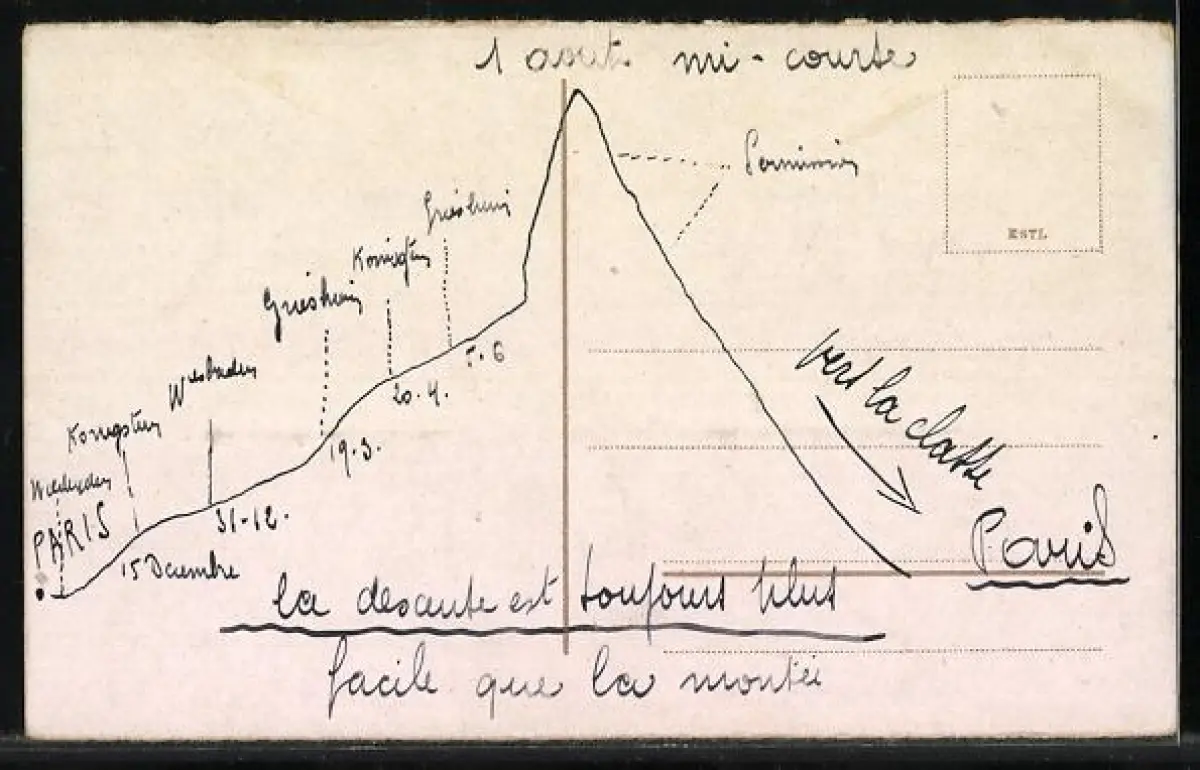 1 aout. mi-courte
Permission
Griesheim
Konigstein
Griesheim
Wiesbaden
Konigstein
Wiesbaden
PARIS
15 Decembre
31-12.
19.3.
20.4.
5.6
ESTL
vers la classe
Paris
la descente est toujours plus
facile que la montée